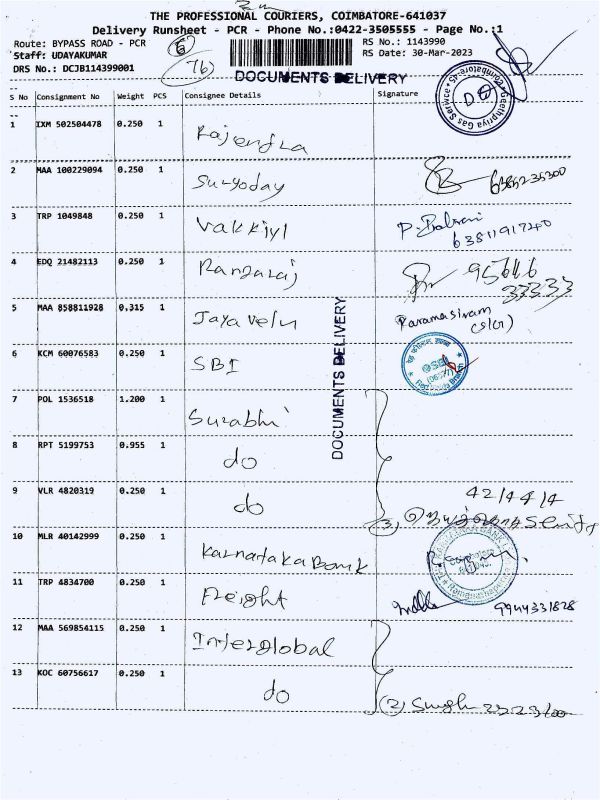 THE PROFESSIONAL COURIERS, COIMBATORE-641037
Delivery Runsheet - PCR - Phone No.:0422-3505555 - Page No.:1
Route: BYPASS ROAD - PCR
RS No.: 1143990
Staff: UDAYAKUMAR
RS Date: 30-Mar-2023
DRS No.: DCJB114399001
76)
DOCUMENTS DELIVERY
S No Consignment No Weight PCS Consignee Details Signature
1 IXM 502504478 0.250 1 Rajendra
2 MAA 100229094 0.250 1 Suryoday 6385235300
3 TRP 1049848 0.250 1 Vakkiyl
4 EDQ 21482113 0.250 1 Rangaraj 95666 33333
5 MAA 858811928 0.315 1 Jayavelu Paramasivam
DOCUMENTS DELIVERY
6 KCM 60076583 0.250 1 SBI
7 POL 1536518 1.200 1 Surabhi
8 RPT 5199753 0.955 1 do
9 VLR 4820319 0.250 1 do
42/4414
10 MLR 40142999 0.250 1 Karnataka Bank
11 TRP 4834700 0.250 1 Freight 9944331828
12 MAA 569854115 0.250 1 Interglobal
13 KOC 60756617 0.250 1 do (2) Singh